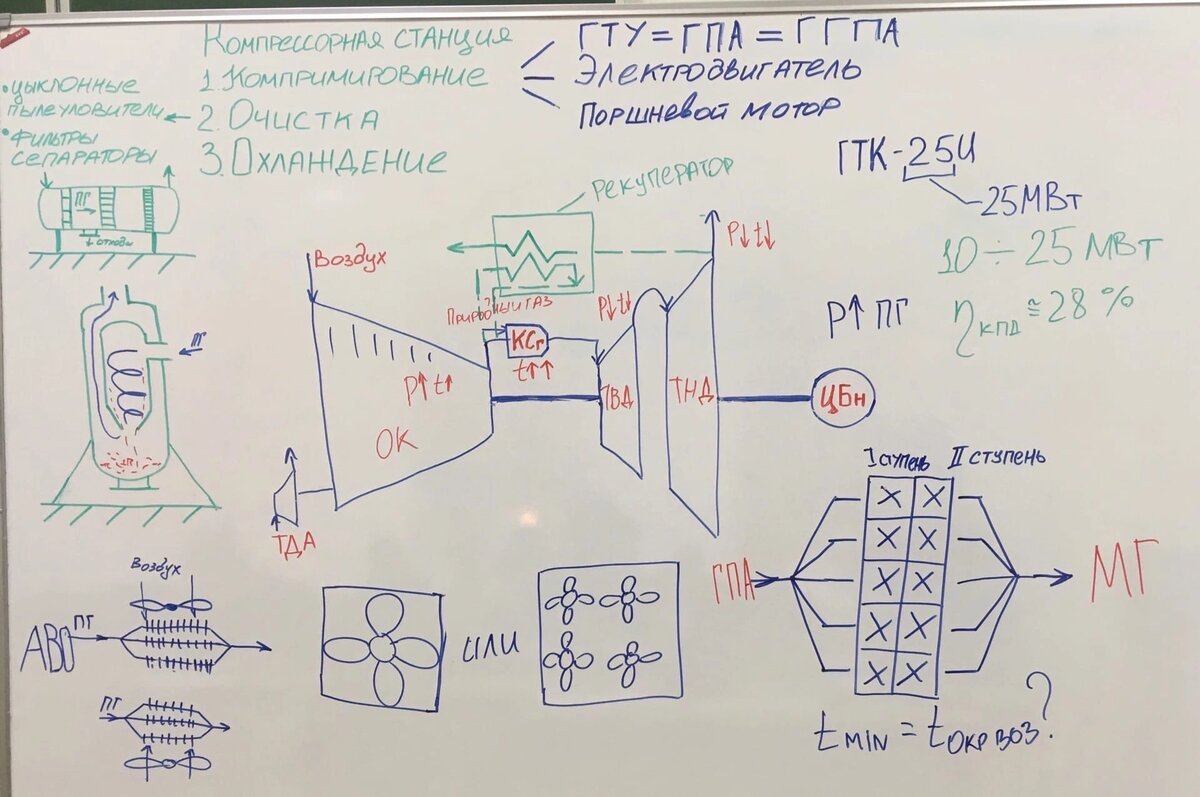 Компрессорная станция
1. Компримирование
2. Очистка
3. Охлаждение
ГТУ = ГПА = ГГПА
Электродвигатель
Поршневой мотор
• циклонные
пылеуловители
• фильтры
сепараторы
ПГ
отходы
ПГ
ГТК-25И
25МВт
10 ÷ 25 МВт
P↑ ПГ
ηкпд ≅ 28 %
рекуператор
Воздух
Природный газ
КСг
t↑↑
P↑ t↑
ОК
P↓ t↓
P↓ t↓
ТВД
ТНД
ЦБн
ТДА
Воздух
АВО
ПГ
ПГ
или
I ступень
II ступень
ГПА
МГ
t min = t окр воз?